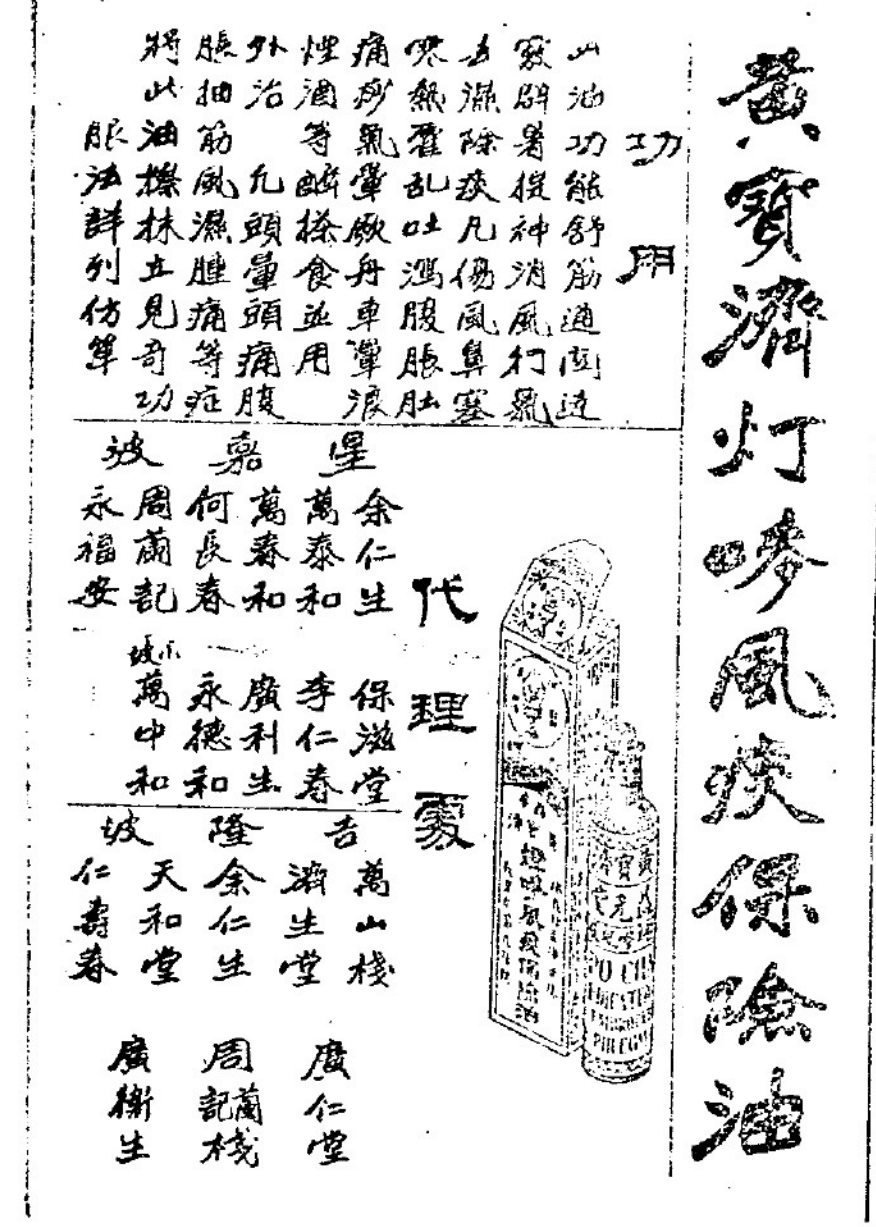 黃寶濟灯嘜風痰保險油
功用
此油功能舒筋通関透
竅辟暑提神消風打氣
去濕除痰凡傷風鼻塞
寒熱霍乱吐瀉腹脹肚
痛痧氣暈厥舟車暈浪
煙酒等醉搽食並用
外治 凡頭暈頭痛腹
脹抽筋風濕腫痛等症
將此油搽抹立見奇功
服法詳列仿單
代理處
星嘉坡
余仁生
萬泰和
萬春和
何長春
周蘭記
永福安
保滋堂
李仁春
廣利生
永德和
小坡萬中和
吉隆坡
萬山棧
濟生堂
余仁生
天和堂
仁壽春
廣仁堂
周蘭記棧
廣衡生
黃寶濟
PO CHAI